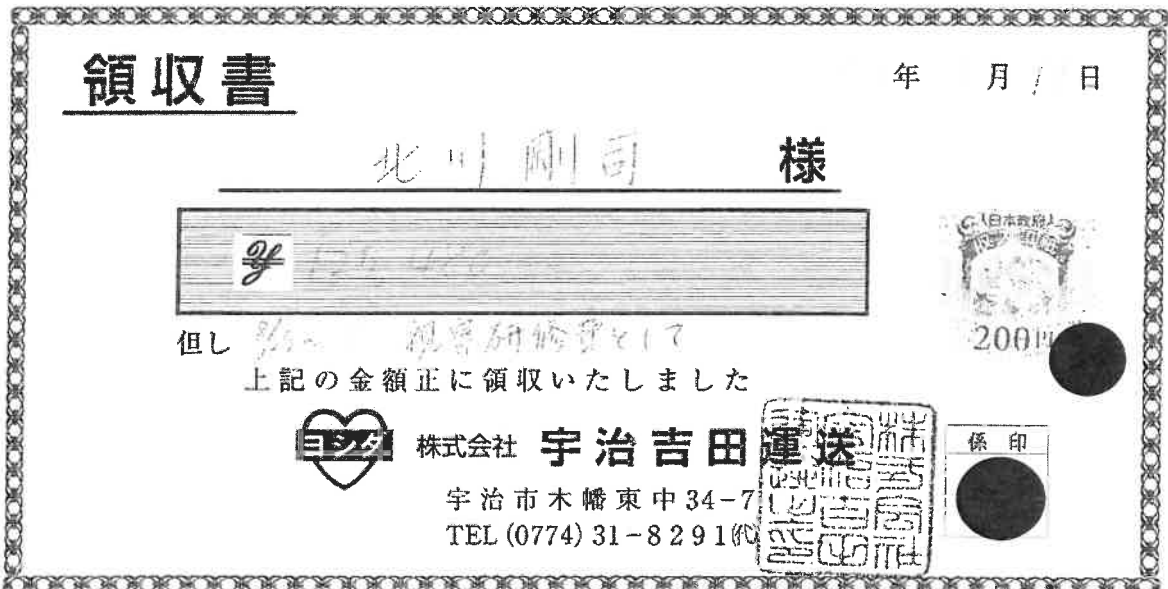 領収書
年 月 日
北川剛司 様
¥
但し 視察研修費として
上記の金額正に領収いたしました
ヨシダ 株式会社 宇治吉田運送
宇治市木幡東中34-7
TEL (0774) 31-8291㈹
日本政府
200円
係印